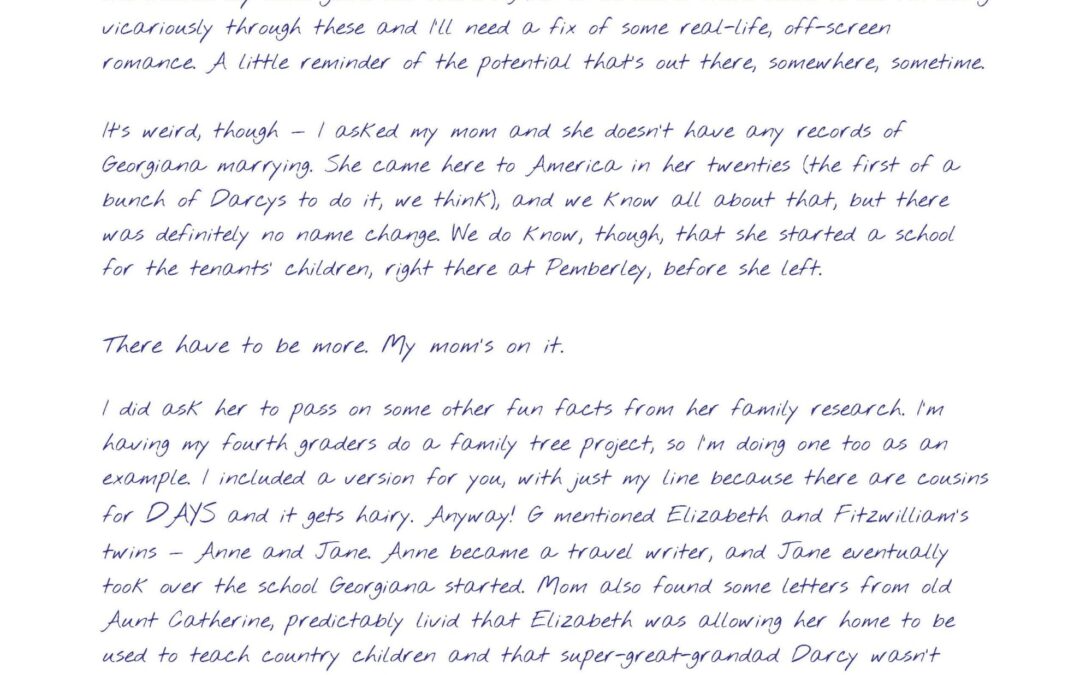 vicariously through these and I'll need a fix of some real-life, off-screen
romance. A little reminder of the potential that's out there, somewhere, sometime.
It's weird, though – I asked my mom and she doesn't have any records of
Georgiana marrying. She came here to America in her twenties (the first of a
bunch of Darcys to do it, we think), and we know all about that, but there
was definitely no name change. We do know, though, that she started a school
for the tenants' children, right there at Pemberley, before she left.
There have to be more. My mom's on it.
I did ask her to pass on some other fun facts from her family research. I'm
having my fourth graders do a family tree project, so I'm doing one too as an
example. I included a version for you, with just my line because there are cousins
for DAYS and it gets hairy. Anyway! G mentioned Elizabeth and Fitzwilliam's
twins – Anne and Jane. Anne became a travel writer, and Jane eventually
took over the school Georgiana started. Mom also found some letters from old
Aunt Catherine, predictably livid that Elizabeth was allowing her home to be
used to teach country children and that super-great-grandad Darcy wasn't